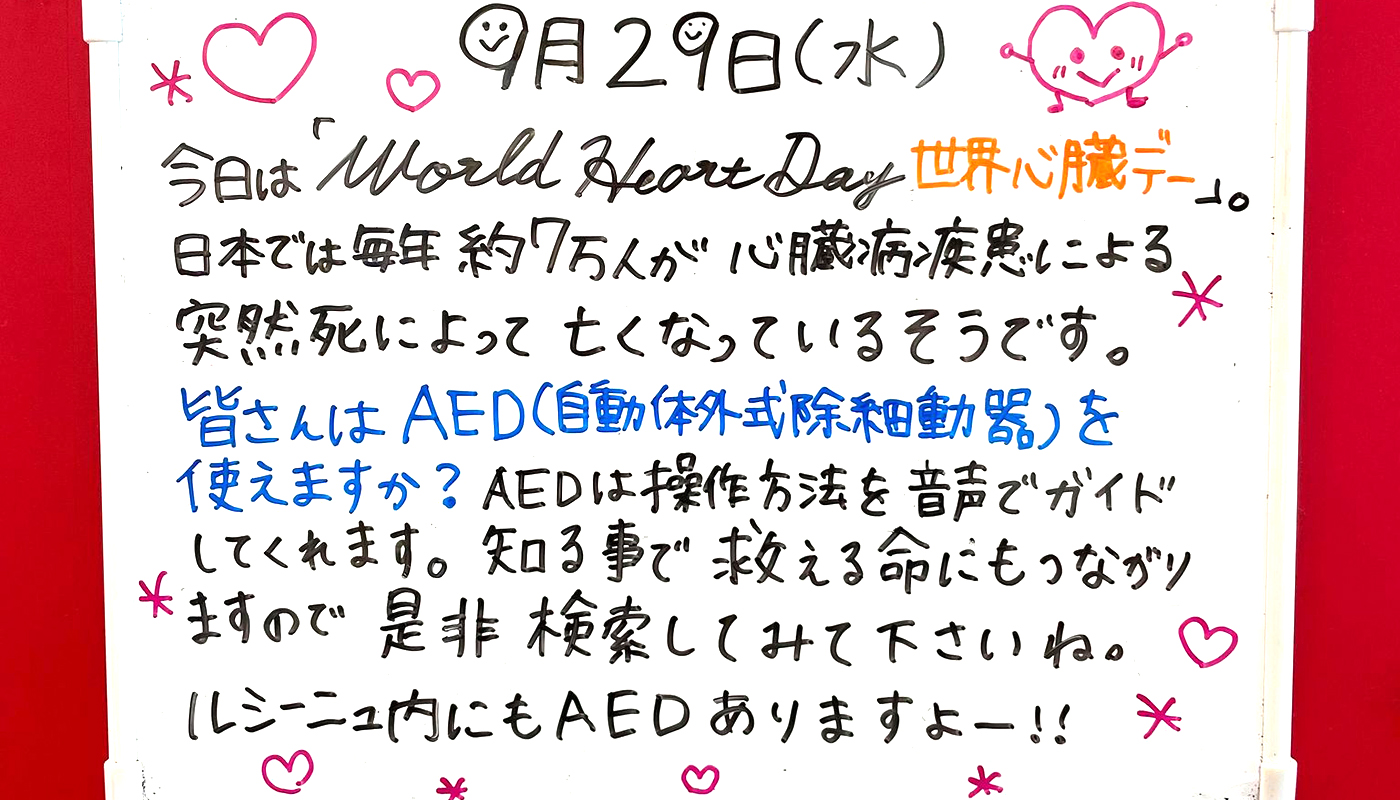 9月29日(水)
今日は「World Heart Day 世界心臓デー」。
日本では毎年 約7万人が 心臓病疾患による
突然死によって 亡くなっているそうです。
皆さんは AED(自動体外式除細動器)を
使えますか? AEDは操作方法を 音声でガイド
してくれます。 知る事で 救える命にもつながり
ますので 是非 検索してみて下さいね。
ルシーニュ内にもAEDありますよー!!